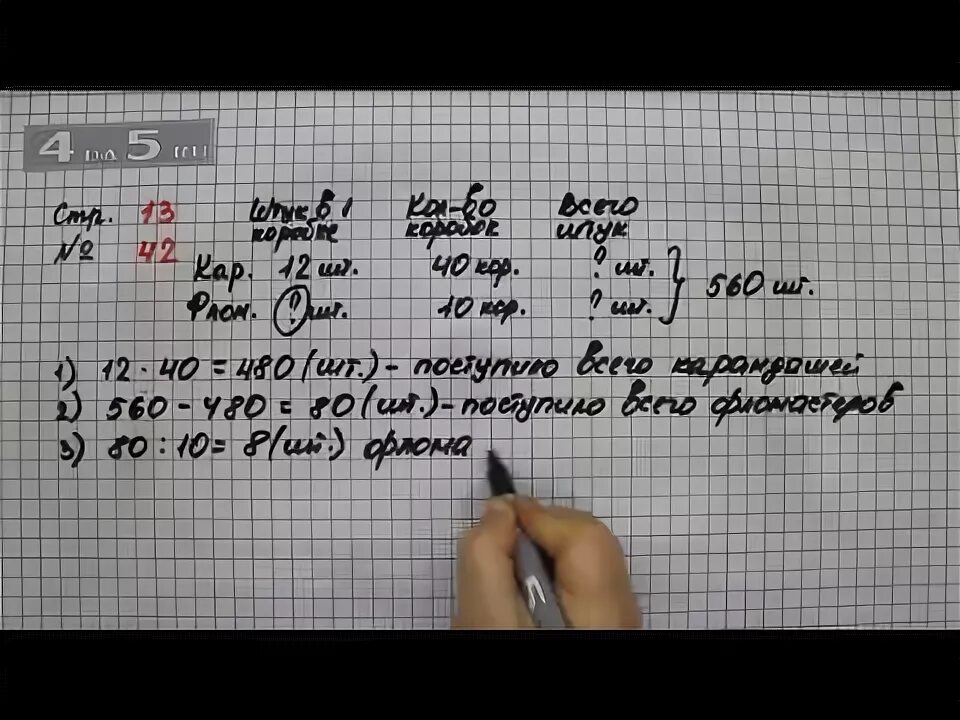 4 на 5
Стр. 13 Штук в 1 коробке Кол-во коробок Всего штук
№ 42
Кар. 12 шт. 40 кор. ? шт.
Флом. ? шт. 10 кор. ? шт.
560 шт.
1) 12 · 40 = 480 (шт.) - поступило всего карандашей
2) 560 - 480 = 80 (шт.) - поступило всего фломастеров
3) 80 : 10 = 8 (шт.) флома